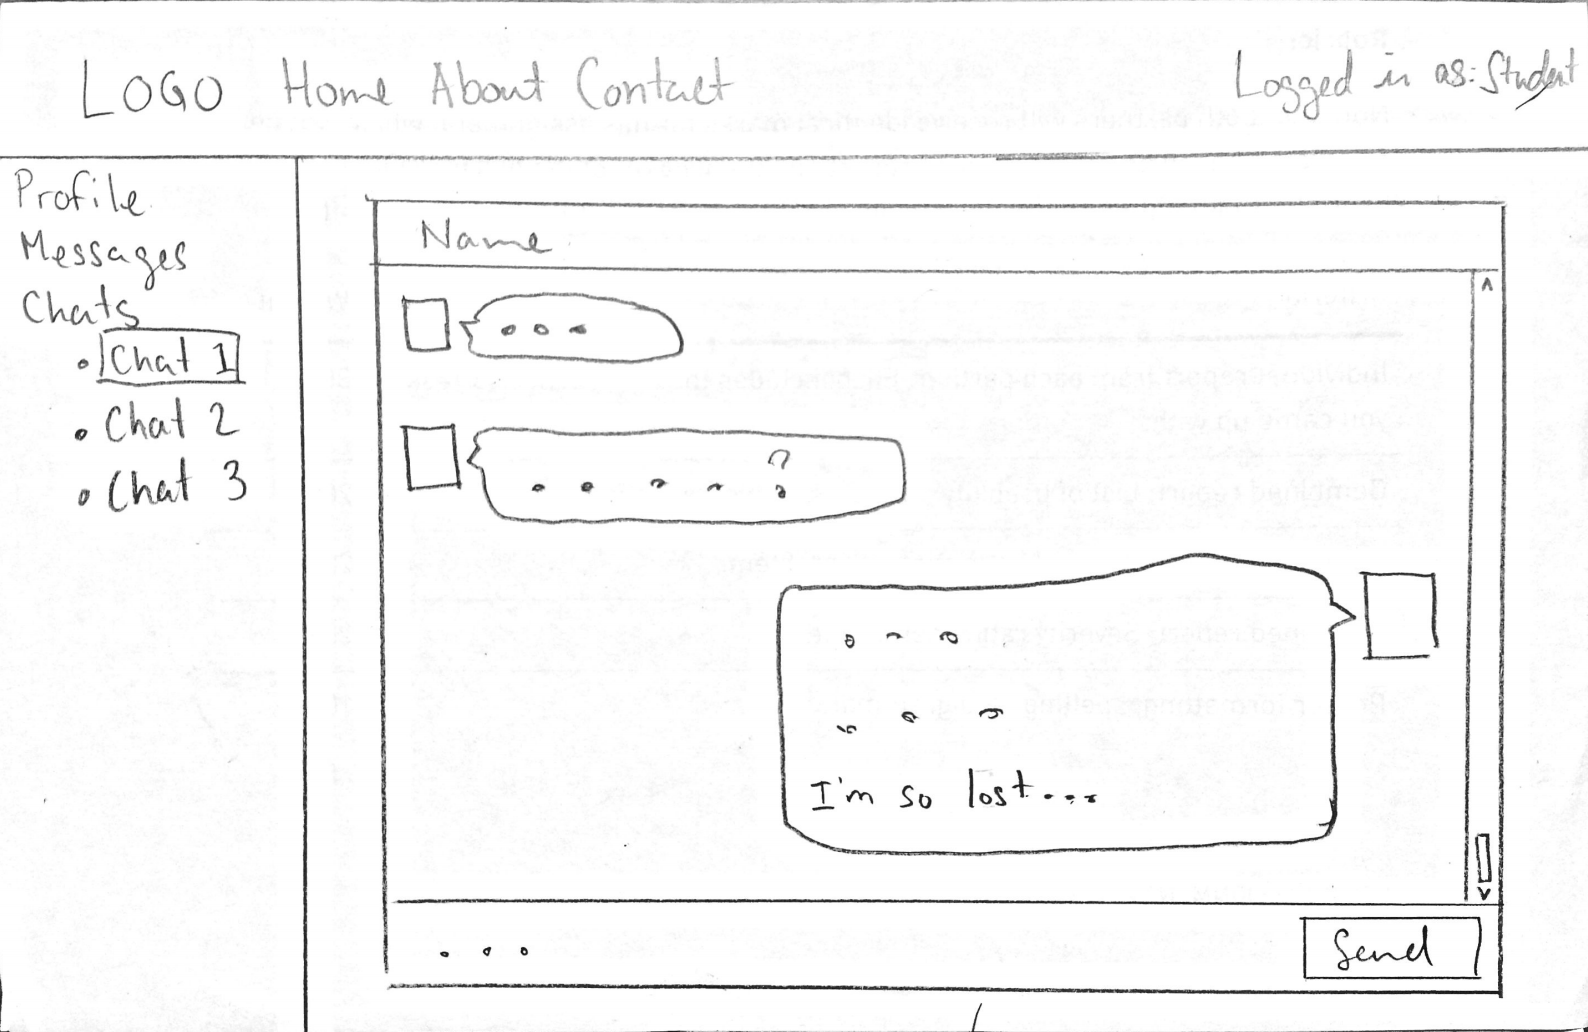 LOGO Home About Contact Logged in as: Student
Profile
Messages
Chats
• Chat 1
• Chat 2
• Chat 3
Name
...
.....?
...
...
I'm so lost...
...
Send